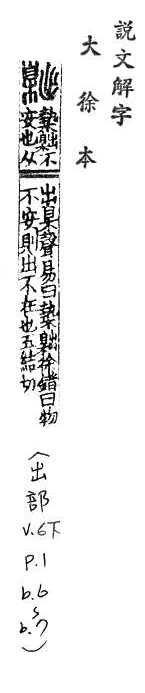 説文解字
大徐本
槷不
安也从
出臬聲易曰槷徐鍇曰物
不安則出不在也五結切
(出部
v.6下
p.1
b.6
~
b.7)